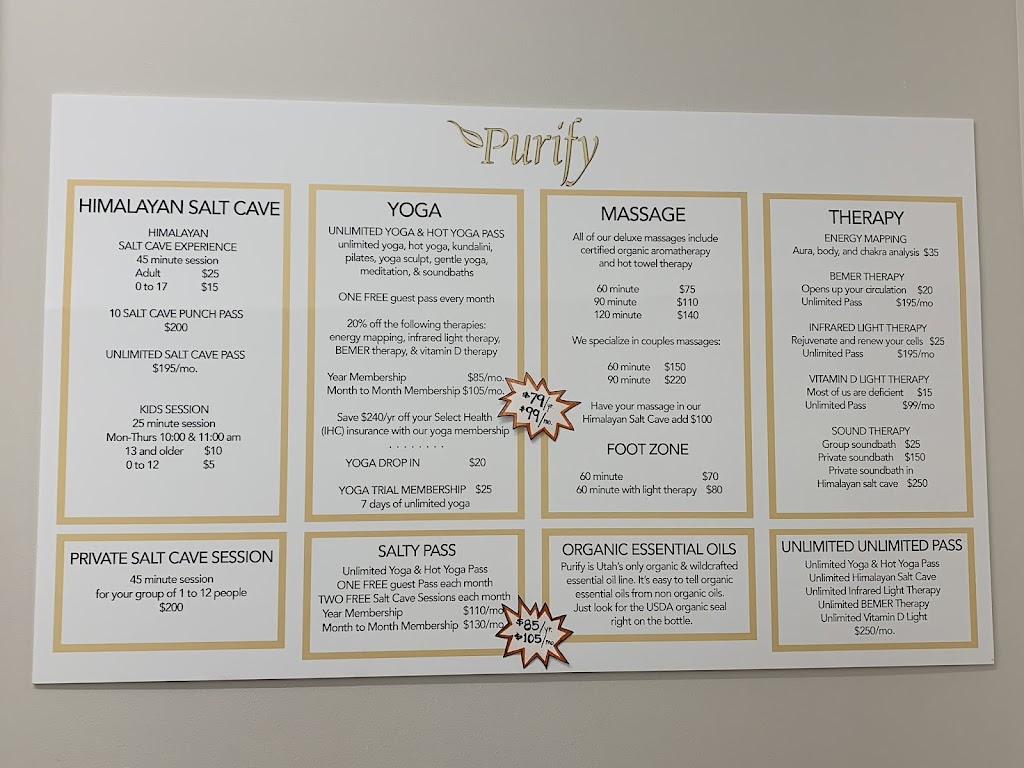 Purify
HIMALAYAN SALT CAVE
HIMALAYAN
SALT CAVE EXPERIENCE
45 minute session
Adult $25
0 to 17 $15
10 SALT CAVE PUNCH PASS
$200
UNLIMITED SALT CAVE PASS
$195/mo.
KIDS SESSION
25 minute session
Mon-Thurs 10:00 & 11:00 am
13 and older $10
0 to 12 $5
YOGA
UNLIMITED YOGA & HOT YOGA PASS
unlimited yoga, hot yoga, kundalini,
pilates, yoga sculpt, gentle yoga,
meditation, & soundbaths
ONE FREE guest pass every month
20% off the following therapies:
energy mapping, infrared light therapy,
BEMER therapy, & vitamin D therapy
Year Membership $85/mo.
Month to Month Membership $105/mo.
$79/yr.
$99/mo.
Save $240/yr off your Select Health
(IHC) insurance with our yoga membership
. . . . . . . .
YOGA DROP IN $20
YOGA TRIAL MEMBERSHIP $25
7 days of unlimited yoga
MASSAGE
All of our deluxe massages include
certified organic aromatherapy
and hot towel therapy
60 minute $75
90 minute $110
120 minute $140
We specialize in couples massages:
60 minute $150
90 minute $220
Have your massage in our
Himalayan Salt Cave add $100
FOOT ZONE
60 minute $70
60 minute with light therapy $80
THERAPY
ENERGY MAPPING
Aura, body, and chakra analysis $35
BEMER THERAPY
Opens up your circulation $20
Unlimited Pass $195/mo
INFRARED LIGHT THERAPY
Rejuvenate and renew your cells $25
Unlimited Pass $195/mo
VITAMIN D LIGHT THERAPY
Most of us are deficient $15
Unlimited Pass $99/mo
SOUND THERAPY
Group soundbath $25
Private soundbath $150
Private soundbath in
Himalayan salt cave $250
PRIVATE SALT CAVE SESSION
45 minute session
for your group of 1 to 12 people
$200
SALTY PASS
Unlimited Yoga & Hot Yoga Pass
ONE FREE guest Pass each month
TWO FREE Salt Cave Sessions each month
Year Membership $110/mo
Month to Month Membership $130/mo
$85/yr.
$105/mo
ORGANIC ESSENTIAL OILS
Purify is Utah's only organic & wildcrafted
essential oil line. It's easy to tell organic
essential oils from non organic oils.
Just look for the USDA organic seal
right on the bottle.
UNLIMITED UNLIMITED PASS
Unlimited Yoga & Hot Yoga Pass
Unlimited Himalayan Salt Cave
Unlimited Infrared Light Therapy
Unlimited BEMER Therapy
Unlimited Vitamin D Light
$250/mo.